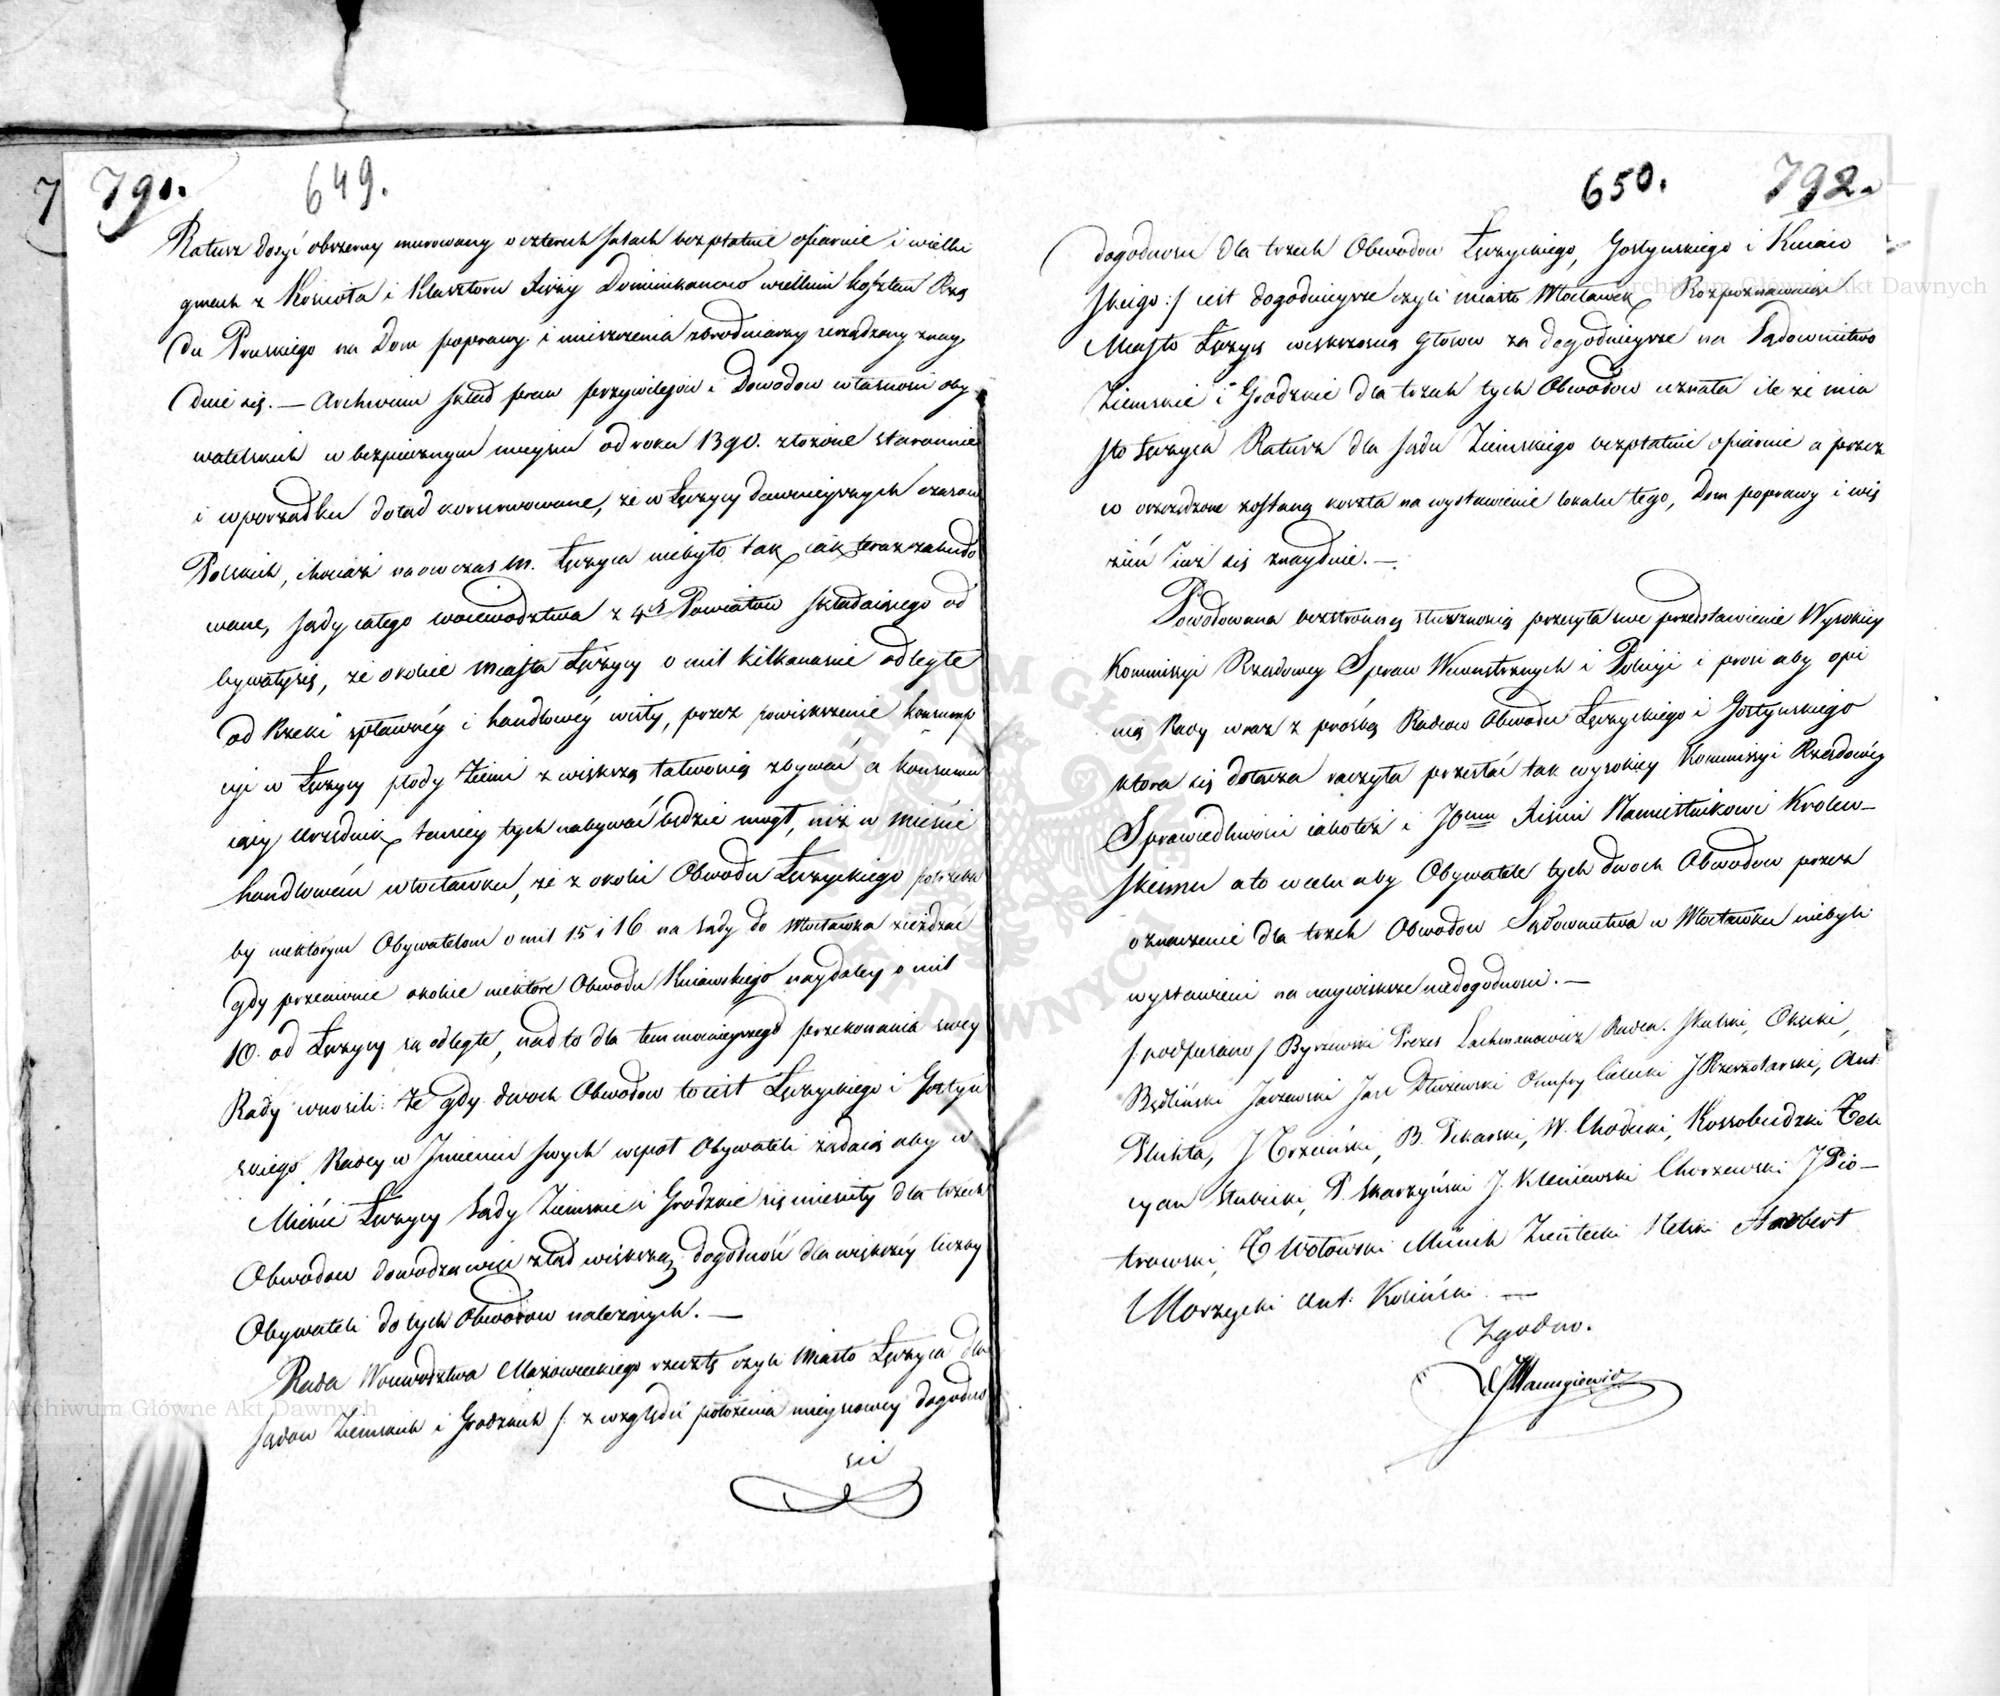 7 791. 649.
Ratusz dosyć obszerny murowany o czterech salach bezpłatnie ofiaruie i wielki
gmach z Kościoła i Klasztoru Xięży Dominikanow wielkim kosztem Rzą
du Pruskiego na Dom poprawy i umieszczenia zbrodniarzy urządzony znay
duie się. — Archiwum skład praw przywileiow i Dowodow własności oby
watelskich w bezpiecznym mieyscu od roku 1390. złożone starannie
i w porządku dotąd konserwowane, że w Łęczycy dawnieyszych czasow
Polskich, chociaż naowczas M. Łęczyca niebyło tak iak teraz zabudo
wane, sądy całego woiewodztwa z 4ch Powiatow składaiącego od
bywałysię, że okolice Miasta Łęczycy o mil kilkanascie odległe
od Rzeki spławnéy i handlowéy wisły, przez powiększenie konsump
cyi w Łęczycy płody Ziemi z większą łatwością zbywać a konsumu
iący Urzędnik taniey tych nabywać będzie mogł, niż w mieście
handlowém włocławku, że z okolic Obwodu Łęczyckiego potrzeba
by niektórym Obywatelom o mil 15 i 16 na sądy do Włocławka zieżdzać
gdy przeciwnie okolice niektore Obwodu Kuiawskiego naydaley o mil
10. od Łęczycy są odległe, nadto dla tem mocnieyszego przekonania swey
Rady wnosili: że gdy dwoch Obwodow to iest Łęczyckiego i Gostyń
skiego Radcy w Imieniu swych współ Obywateli żądaią aby w
Mieście Łęczycy Sądy Ziemskie i Grodzkie się mieściły dla trzech
Obwodow dowodzą więc ztąd większą dogodność dla większéy liczby
Obywateli do tych Obwodow należących. —
Rada Woiewodztwa Mazowieckiego rzeczłę czyli Miasto Łęczyca dla
sądow Ziemskich i Grodzkich /: z względu położenia mieyscowey dogodno
sci
650. 792.
dogodnosci dla trzech Obwodow Łęczyckiego, Gostynskiego i Kuiaw
skiego :/ iest dogodnieysze czyli miasto Włocławek Rozpoznawaiąc
Miasto Łęczycę większością głosow za dogodnieysze na Sądownictwo
Ziemskie i Grodzkie dla trzech tych Obwodow uznała ile że mia
sto Łęczyca Ratusz dla sądu Ziemskiego bezpłatnie ofiaruie a przez
co oszczędzone zostaną koszta na wystawienie lokalu tego, Dom poprawy i wię
zień iuż się znayduie. —
Powodowana bezstronną słusznością przesyła swe przedstawienie Wysokiey
Kommissyi Rządowey Spraw Wewnętrznych i Policyi i prosi aby opi
nią Rady wraz z prośbą Radcow Obwodu Łęczyckiego i Gostynskiego
ktora się dołącza raczyła przesłać tak wysokiey Kommissyi Rządowéy
Sprawiedliwosci iakoteż i JOmu Xięciu Namiestnikowi Krolew—
skiemu a to w celu aby Obywatele tych dwoch Obwodow przez
oznaczenie dla trzech Obwodow Sądownictwa w Włocławku niebyli
wystawieni na naywiększe niedogodnosci. —
/: podpisano / Byszewski Prezes Lachmanowicz Radca. Skulski, Okęcki,
Będliński Jarzewski Jan Dłużewski Onufry Cielecki J Rzeszotarski, Ant.
Plichta, J Trzciński, B. Pekarski, W. Chodecki, Kossobudzki Feli
cyan Słubicki, P. Skarzyński J. Kleniewski Chorzewski J Pio—
trowski, T Wołowski Minich Zieńtecki Helski Harbert
Morzycki Ant. Kosiński. —
Zgodno.